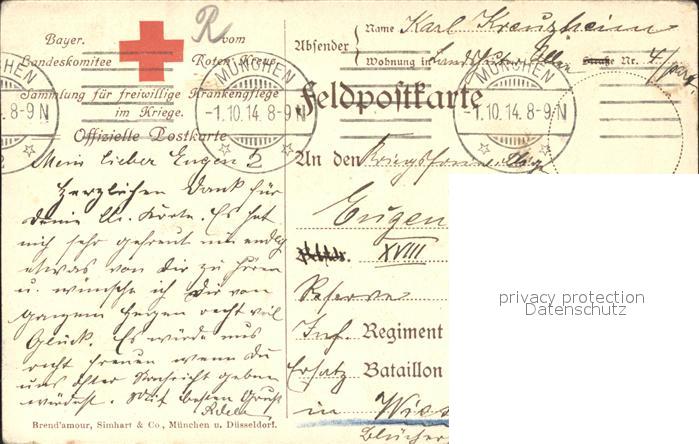 Bayer. vom
Landeskomitee Roten Kreuz
Sammlung für freiwillige Krankenpflege
im Kriege.
Offizielle Postkarte
R
MÜNCHEN
-1.10.14. 8-9 N
MÜNCHEN
-1.10.14 8-9 N
MÜNCHEN
-1.10.14. 8-9 N
Absender
Name Karl Kreuzheim
Wohnung in Nr. 4/
Feldpostkarte
An den
Eugen
XVIII
Reserve
Inf. Regiment
Ersatz Bataillon
in
Blücher
Mein lieber Eugen
Herzlichen Dank für
deine lb. Karte. Es hat
mich sehr gefreut nun endlich
etwas von Dir zu hören
u. wünsche ich Dir von
ganzem Herzen recht viel
Glück. Es würde uns
recht freuen wenn Du
uns öfter Nachricht geben
würdest. Mit besten Gruß
Adele
Brend'amour, Simhart & Co., München u. Düsseldorf.
privacy protection
Datenschutz